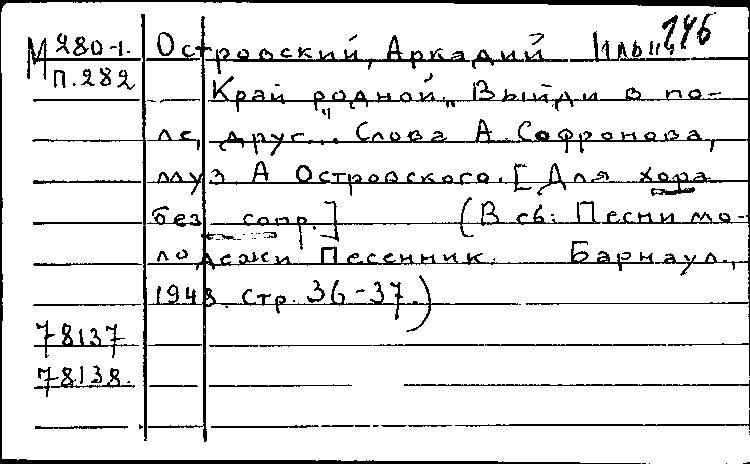 146
М 280-1. Островский, Аркадий Ильич
П.282 Край родной. „Выйди в по-
ле, друг... Слова А. Софронова,
муз А Островского. [Для хора
без сопр.] (В сб: Песни мо-
лодежи Песенник. Барнаул.,
1948. стр. 36-37.)
78137
78138.